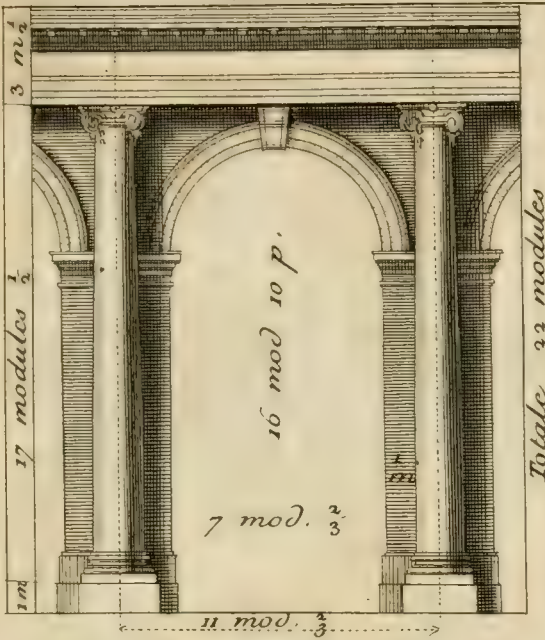 3 m 1/2
17 modules 1/2
1 m
16 mod 10 p.
7 mod. 2/3
1 m
11 mod. 2/3
Totale 22 modules